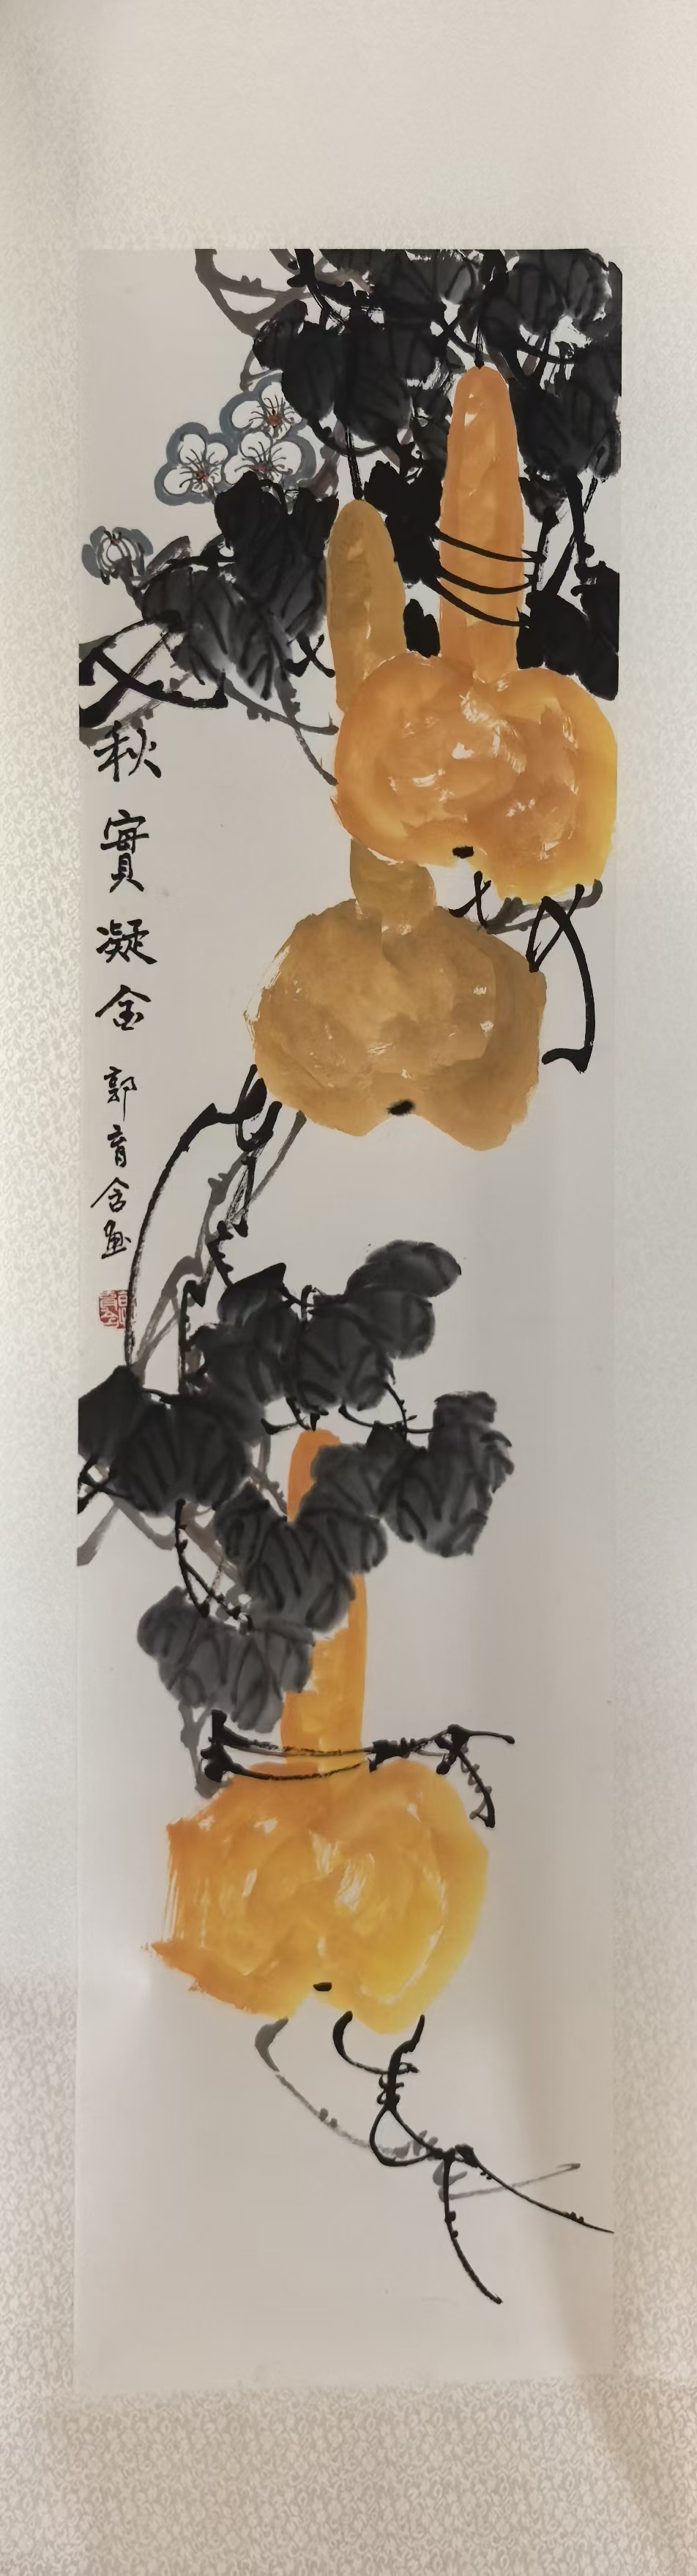 秋實凝金 郭育含画